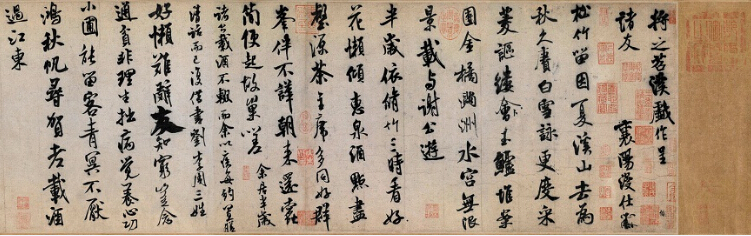 將之苕溪戲作呈
諸友
襄陽漫仕黻
松竹留因夏溪山去為
秋久賡白雪詠更度采
菱謳縷會玉鱸堆案
團金橘滿洲水宮無限
景載與謝公遊
半歲依修竹三時看好
花懶傾惠泉酒點盡
壑源茶主席多同好群
峰伴不譁朝來還蠹
簡便起故巢嗟
余居半歲
諸公載酒不輟而余以疾每約置膳
清話而已復借書劉李周三姓
好懶難辭友知窮豈念
通貧非理生拙病覺養心功
小圃能留客青冥不厭
鴻秋帆尋賀老載酒
過江東